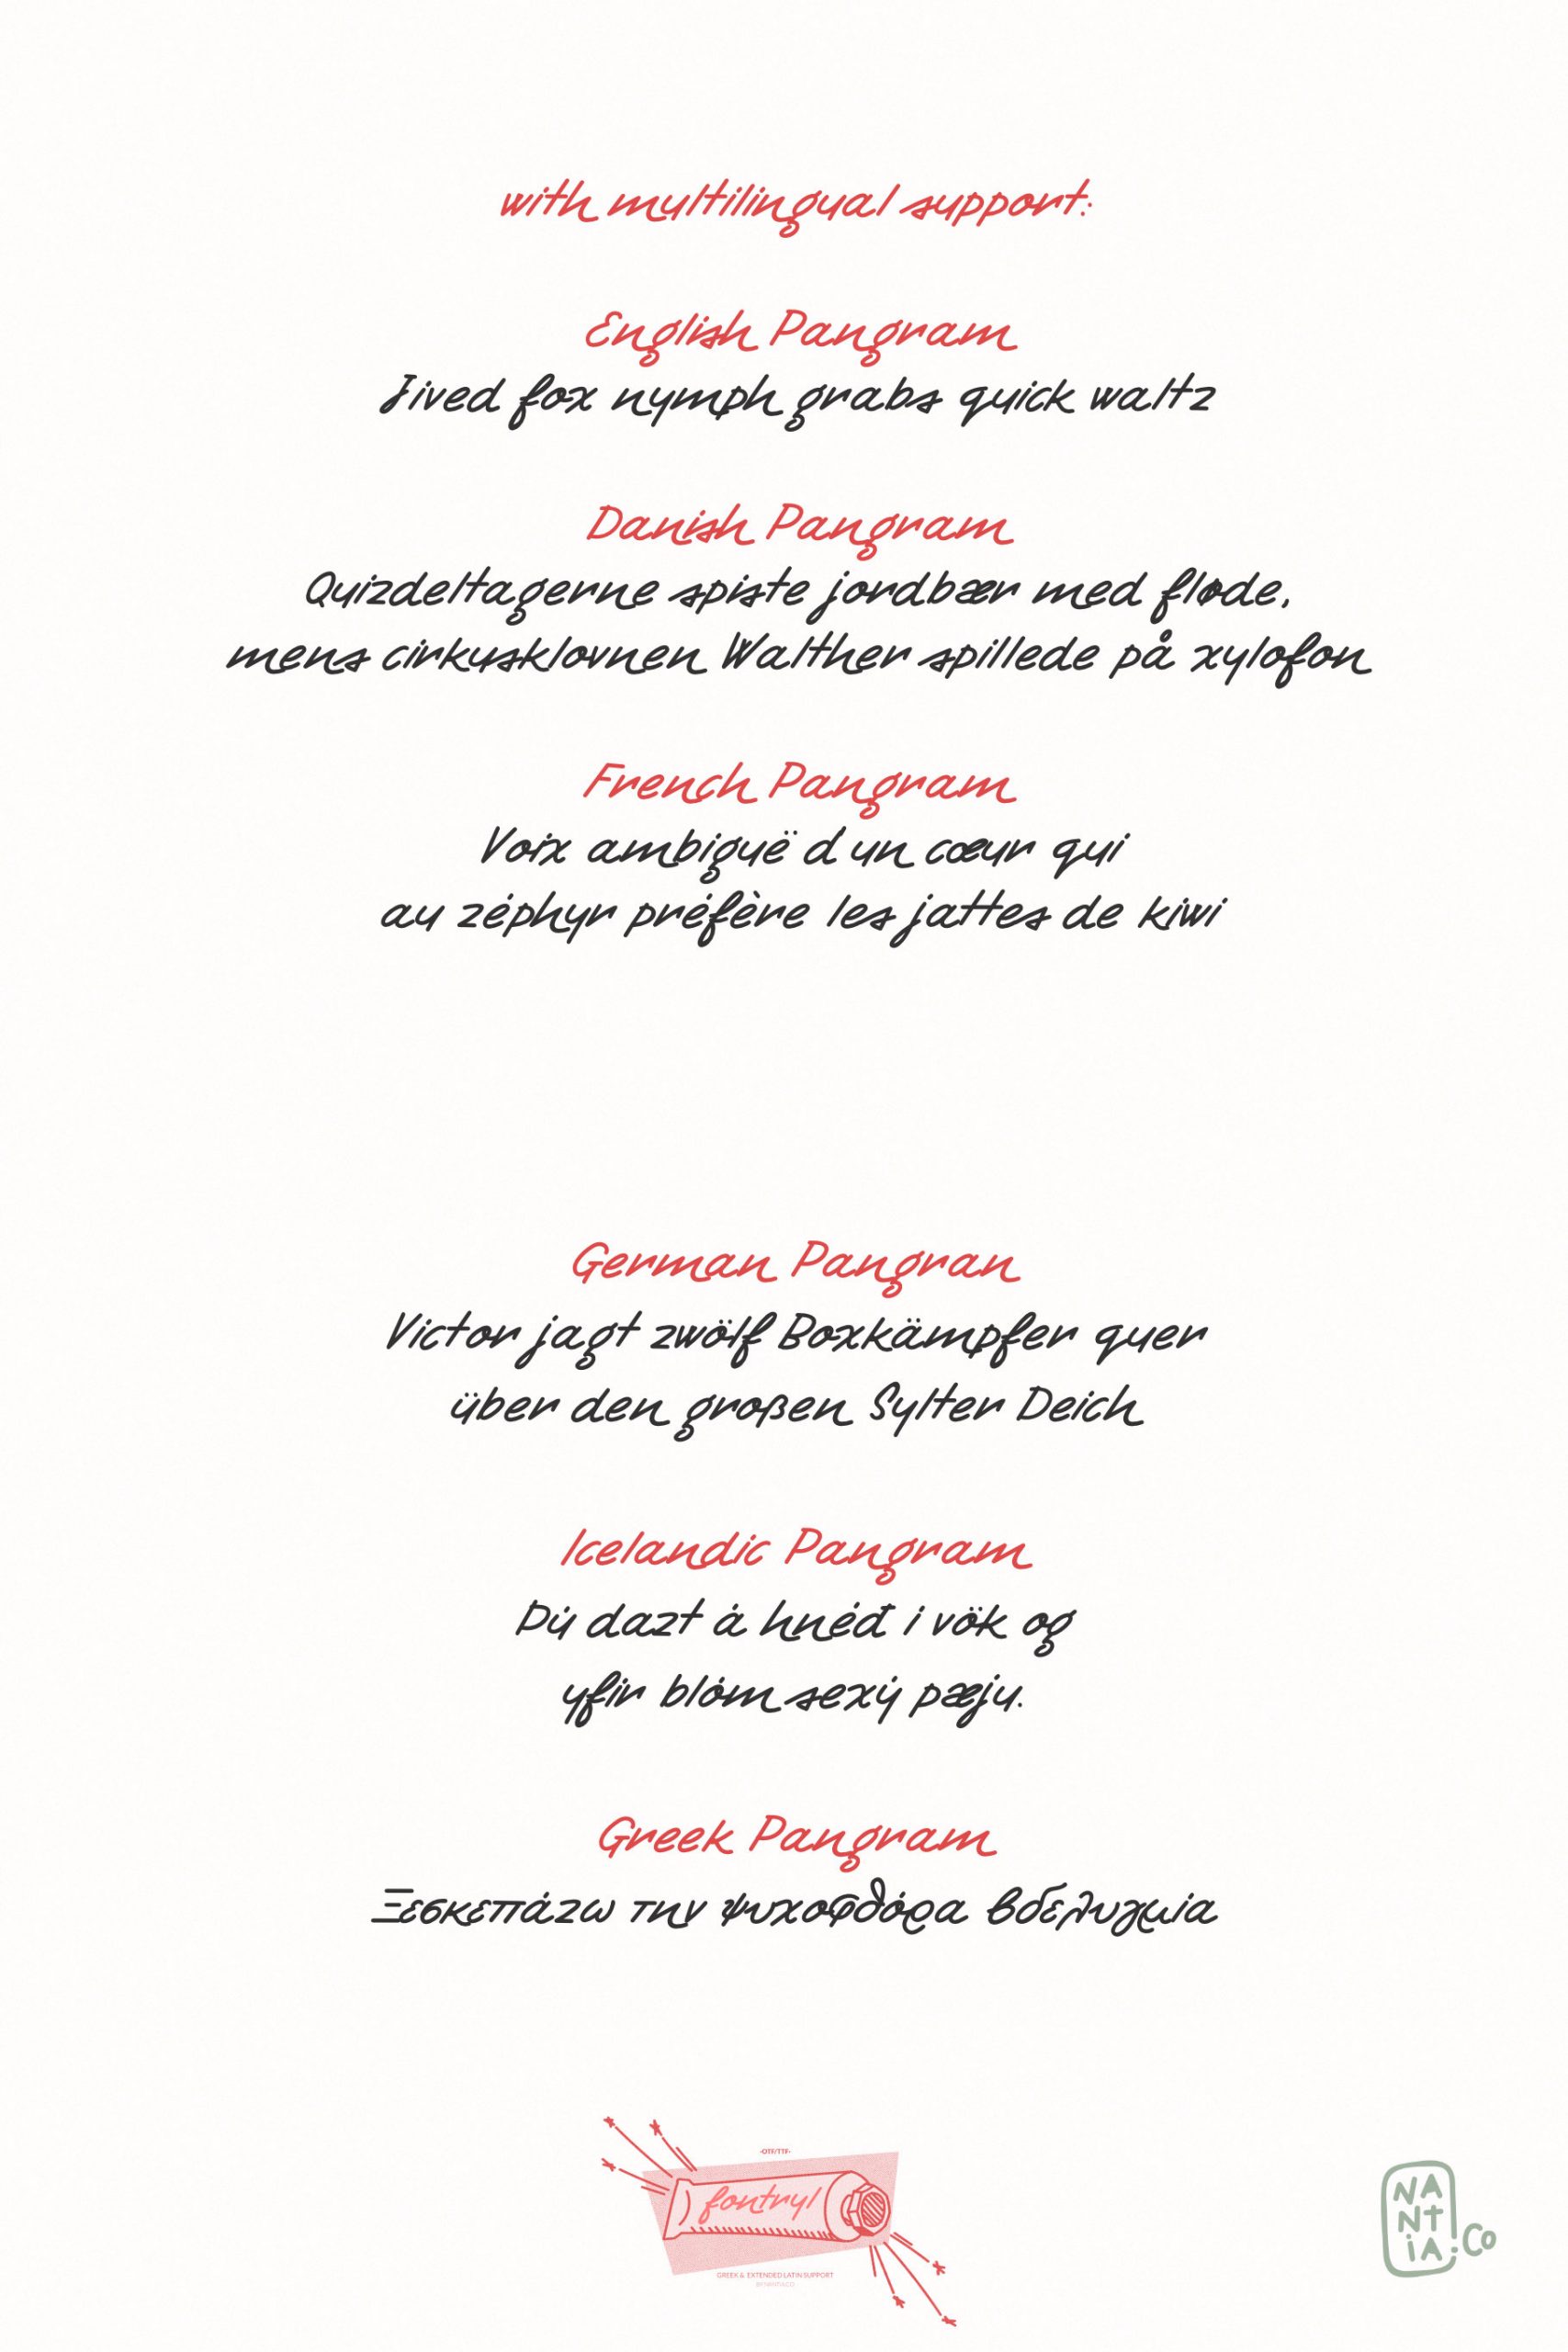 with multilingual support:
English Pangram
Jived fox nymph grabs quick waltz
Danish Pangram
Quizdeltagerne spiste jordbær med fløde,
mens cirkusklovnen Walther spillede på xylofon
French Pangram
Voix ambiguë d'un cœur qui
au zéphyr préfère les jattes de kiwi
German Pangran
Victor jagt zwölf Boxkämpfer quer
über den großen Sylter Deich
Icelandic Pangram
Þú dazt á hnéđ í vök og
yfir blóm sexý pæju.
Greek Pangram
Ξεσκεπάζω την ψυχοφθόρα βδελυγμία
-OTF/TTF-
fontryl
GREEK & EXTENDED LATIN SUPPORT
BY NANTIA.CO
NANtiA.Co